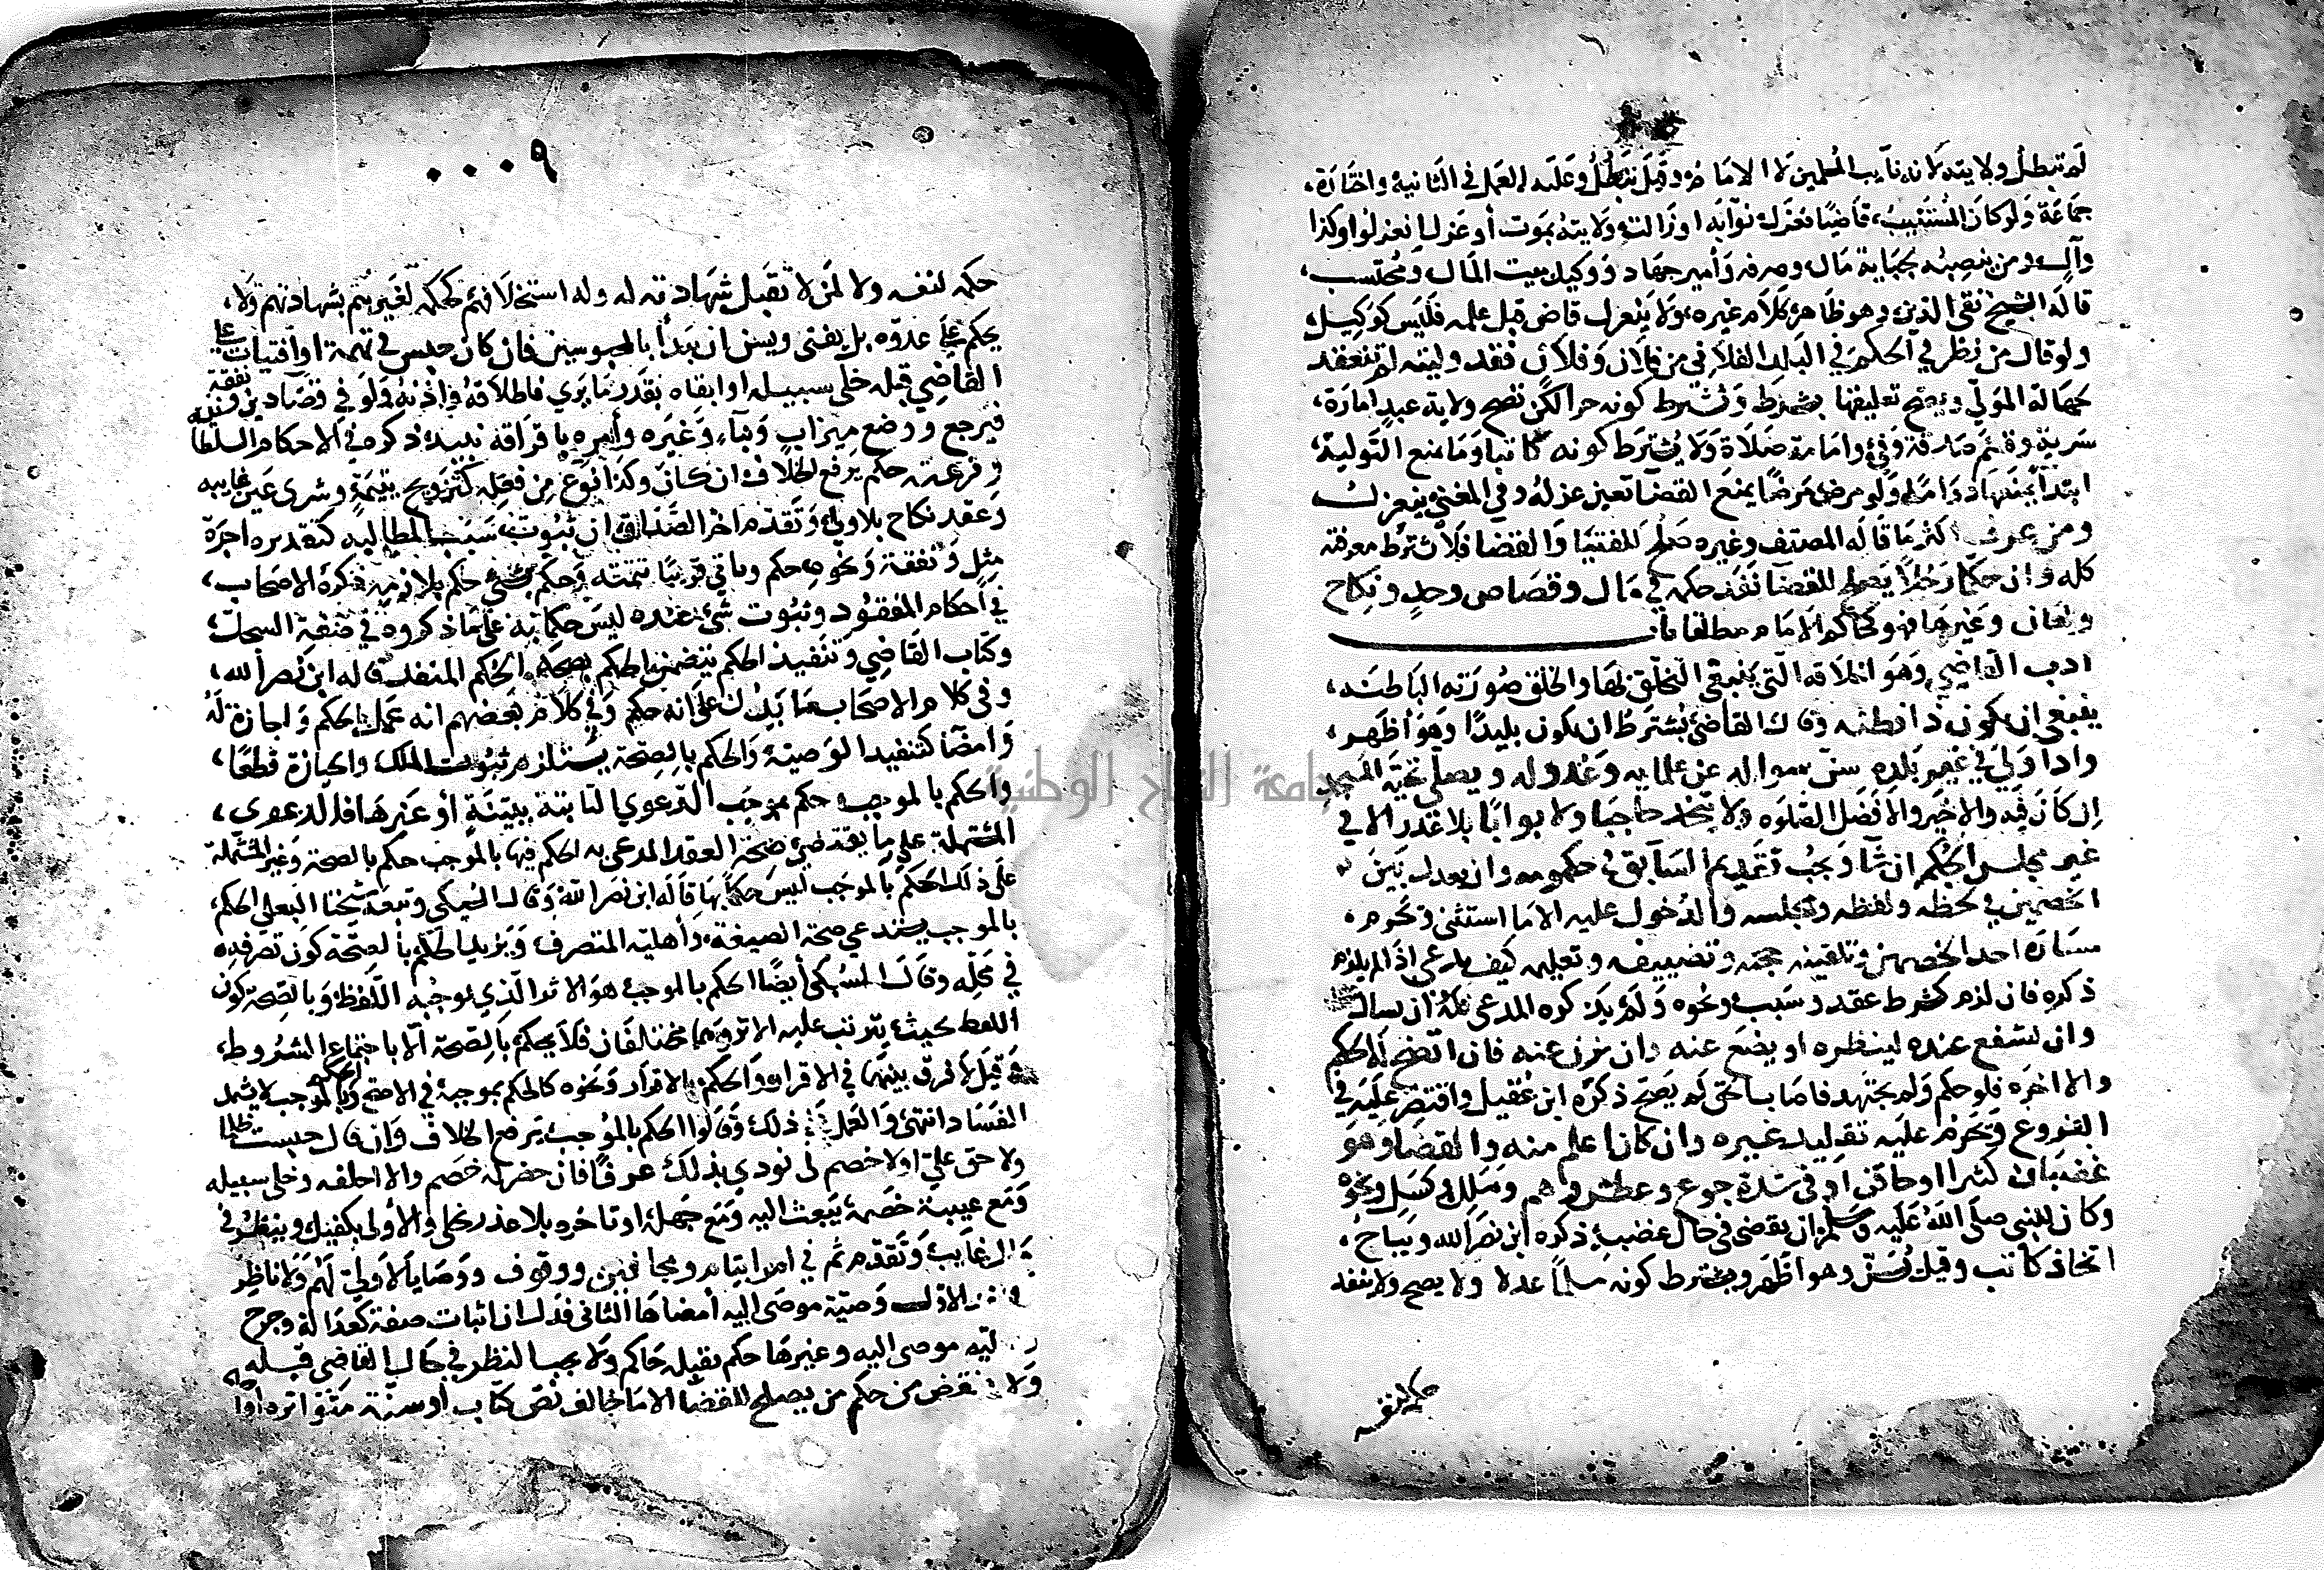 لم تبطل ولايته لانه نايب المسلمين لا الامام وقيل تبطل وعليه العمل في الثانية واختاره
جماعة ولو كان المستنيب قاضيا فعزل نوابه او زالت ولايته بموت أو عزل انعزلوا وكذا
وآل ومن ينصبه بجباية مال وصرفه وأمير جهاد ووكيل بيت المال ومحتسب
قاله الشيخ تقي الدين وهو ظاهر كلام غيره ولا ينعزل قاض قبل علمه فليس كوكيل
ولو قال من نظر في الحكم في البلد الفلاني من فلان وفلان فقد وليته لم تنعقد
لجهالة المولى ويصح تعليقها بشرط وتشترط كونه حرا لكن تصح ولاية عبد امارة
سرية وقسم صدقة وفئ وامامة صلاة ولا يشترط كونه كاتبا وما يمنع التولية
ابتدأ يمنعها دواما ولو مرض مرضا يمنع القضا تعين عزله وفي المغني ينعزل
ومن عرف اكثر ما قاله المصنف وغيره صلح للفتيا والقضا فلا تشترط معرفته
كله وان حكما رجلا يصلح للقضا نفذ حكمه في مال وقصاص وحد ونكاح
ولعان وغيرها فهو كحاكم الامام مطلقا باب
ادب القاضي وهو اخلاقه التي ينبغي التخلق بها والخلق صورته الباطنه
ينبغي ان يكون ذا فطنه وقال القاضي يشترط ان يكون بليدا وهو أظهر
واذا ولي في غير بلده سن سواله عن علمايه وعدوله ويصلي تحية المسجد
ان كان فيه والا خير والافضل الصلوه ولا يتخذ حاجبا ولا بوابا بلا عذر الا في
غير مجلس الحكم ان شا ويجب تقديم السابق في حكومه وان يعدل بين
الخصمين في لحظه ولفظه ومجلسه والدخول عليه الا ما استثنى وتحرم
مسارة احد الخصمين وتلقينه حجته وتضييفه وتعليمه كيف يدعي اذا لم يلزم
ذكره فان لزم كشرط عقد وسبب ونحوه ولم يذكره المدعي فله ان يسال
وان يشفع عنده لينظره او يضع عنه وان يزن عنه فان اتضح له الحكم
والا اخره فلو حكم ولم يجتهد فاصاب الحق لم يصح ذكره ابن عقيل واقتصر عليه في
الفروع ويحرم عليه تقليد غيره وان كان اعلم منه والقضا وهو
غضبان كثيرا او حاقن او في شدة جوع وعطش وهم وملل وكسل ونحوه
وكان للنبي صلى الله عليه وسلم ان يقضي في حال غضبه ذكره ابن نصر الله ويباح
اتخاذ كاتب وقيل يسن وهو أظهر ويشترط كونه مسلما عدلا ولا يصح ولا ينفذ
حكمه لنفسه
٩
حكمه لنفسه ولا لمن لا تقبل شهادته له وله استخلافهم كحكمه لغيرهم بشهادتهم ولا
يحكم على عدوه بل يفتي ويسن ان يبدأ بالمحبوسين فان كان حبس في تهمة او افتيات على
القاضي قبله خلى سبيله او ابقاه بقدر ما يرى فاطلاقه واذنه ولو في قضا دين ونفقة
فيرجع ووضع ميزاب وبناء وغيره وأمره باراقة نبيذ ذكره في الاحكام السلطانيه
وقرعته حكم يرفع الخلاف ان كان وكذا نوع من فعله كتزويج يتيمة وشرى عين غايبه
وعقد نكاح بلا ولي وتقدم اخر الصداق ان ثبوت سبب المطالبه كتقديره اجرة
مثل ونفقة ونحوه حكم وياتي قريبا تتمته وحكمه بشئ حكم بلازمه ذكره الاصحاب
في أحكام المفقود وثبوت شئ عنده ليس حكما به على ما ذكروه في صفة السجل
وكتاب القاضي وتنفيذ الحكم يتضمن الحكم بصحة الحكم المنفذ قاله ابن نصر الله
وفي كلام الاصحاب ما يدل على انه حكم وفي كلام بعضهم انه عمل بالحكم واجازة له
وامضا كتنفيذ الوصية والحكم بالصحة يستلزم ثبوت الملك والحيازة قطعا
والحكم بالموجب حكم بموجب الدعوى الثابتة ببينة أو غيرها فالدعوى
المشتملة على ما يقتضي صحة العقد المدعى به الحكم فيها بالموجب حكم بالصحة وغير المشتملة
على ذلك الحكم بالموجب ليس حكما بها قاله ابن نصر الله وقال السبكي وتبعه شيخنا البعلي الحكم
بالموجب يستدعي صحة الصيغة وأهلية المتصرف ويزيد الحكم بالصحة كون تصرفه
في محله وقال السبكي أيضا الحكم بالموجب هو الاثر الذي يوجبه اللفظ وبالصحة كون
اللفظ بحيث يترتب عليه الاثر وهما مختلفان فلا يحكم بالصحة الا باجتماع الشروط
وقيل لا فرق بينهما في الاقرار والحكم بالاقرار ونحوه كالحكم بموجبه في الاصح والحكم بالموجب لا يشمل
الفساد انتهى والعمل على ذلك وقالوا الحكم بالموجب يرفع الخلاف وان قال حبست ظلما
ولا حق علي او لا خصم لي نودي بذلك عرفا فان حضر له خصم والا احلفه وخلى سبيله
ومع غيبة خصمه يبعث اليه ومع جهله او تاخره بلا عذر يخلى والأولى بكفيل وينظر في
مال غايب وتقدم ثم في امر ايتام ومجانين ووقوف ووصايا لا ولي لهم ولا ناظر
الاول وصية موصى اليه أمضاها الثاني فدل ان اثبات صفة كعدالة وجرح
موصى اليه وغيرها حكم يقبله حاكم ولا يجب النظر في حال القاضي قبله
ولا ينقض من حكم من يصلح للقضا الا ما خالف نص كتاب أو سنة متواترة أو